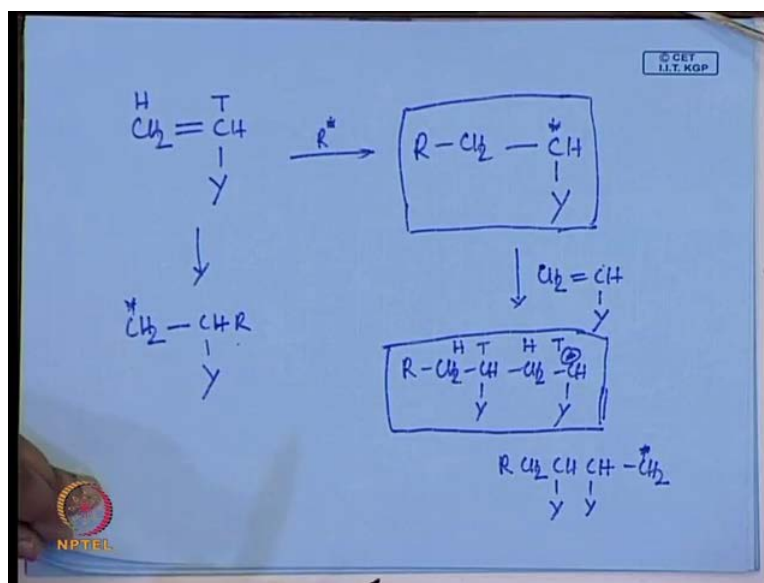 © CET
I.I.T. KGP
H T
CH2 = CH
Y
R*
R - CH2 - C*H
Y
CH2 = CH
Y
*CH2 - CHR
Y
H T H T
R - CH2 - CH - CH2 - C*H
Y Y
R CH2 CH CH - *CH2
Y Y
NPTEL